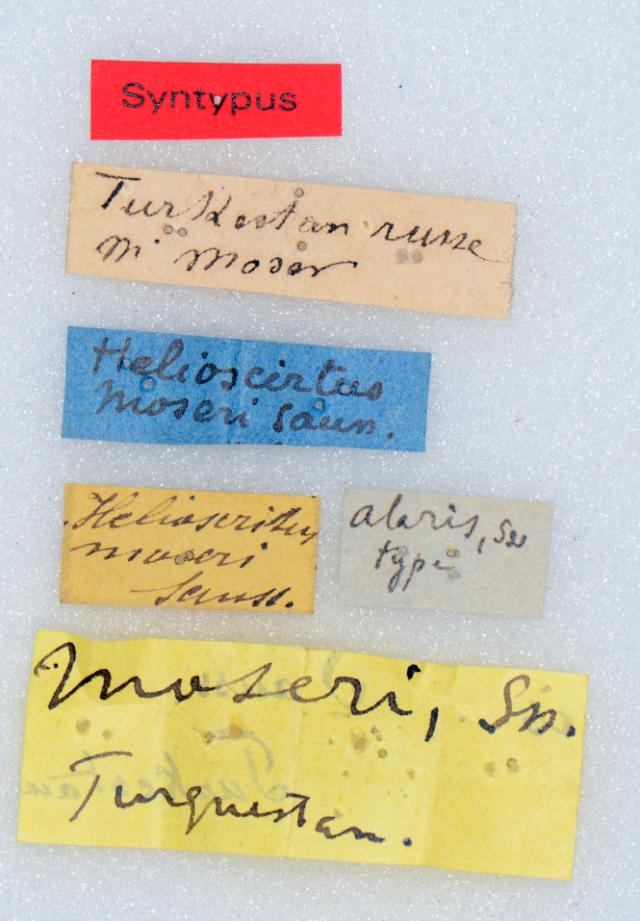 Syntypus
Turkestan russe
Mr Moser
Helioscirtus
moseri Sauss.
Helioscirtus
moseri
Sauss.
alaris, Ss
type
moseri, Ss.
Turquestan.